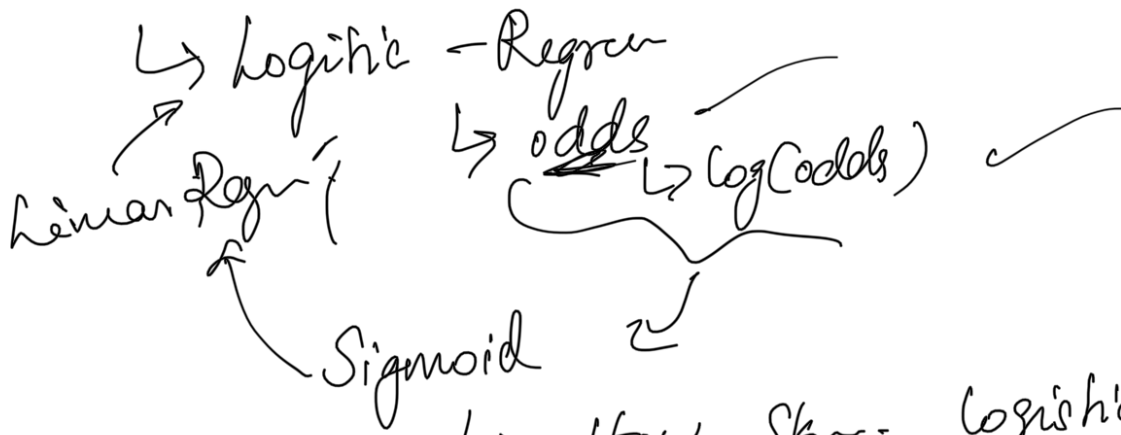 ↳ Logistic - Regren
↳ odds
↳ log(odds)
Linear Regn
Sigmoid
Logistic